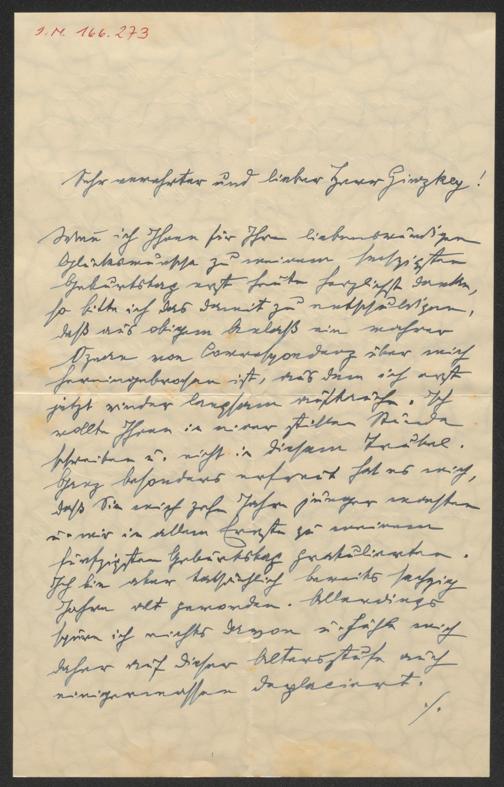 I.N. 166.273
Sehr verehrter und lieber Herr Ginzkey!
Wenn ich Ihnen für Ihre liebenswürdigen
Glückwünsche zu meinem sechzigsten
Geburtstag erst heute herzlichst danke,
so bitte ich das damit zu entschuldigen,
daß aus obigem Anlaß ein wahrer
Ozean von Correspondenz über mich
hereingebrochen ist, aus dem ich erst
jetzt wieder langsam auftauche. Ich
wollte Ihnen in einer stillen Stunde
schreiben u. nicht in diesem Trubel.
Ganz besonders erfreut hat es mich,
daß Sie mich zehn Jahre jünger machten
u. mir in allem Ernste zu meinem
fünfzigsten Geburtstag gratulierten.
Ich bin aber tatsächlich bereits sechzig
Jahre alt geworden. Allerdings
spüre ich nichts davon u. fühle mich
daher auf dieser Altersstufe auch
einigermassen deplaciert.
./.